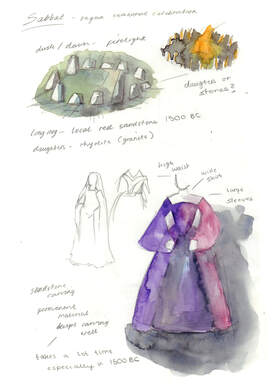 Sabbat - pagan communal celebration
dusk / dawn - firelight
daughters or
stones?
long meg - local red sandstone 1500 BC
daughters - rhyolite (granite)
high
waist
wide
skirt
large
sleeves
sandstone
carving
permanent
material
keeps carving
well
takes a lot time
especially in 1500 BC